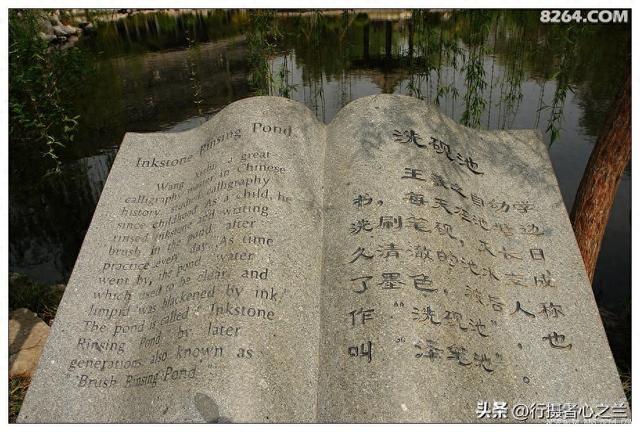 8264.COM
Inkstone Rinsing Pond
Wang Xizhi, a great
calligraphy master in Chinese
history, studied calligraphy
since childhood. As a child, he
rinsed inkstone and writing
brush in the pond after
practice every day. As time
went by, the pond water
which used to be clear and
limpid was blackened by ink.
The pond is called "Inkstone
Rinsing Pond" by later
generations, also known as
"Brush Rinsing Pond."
洗砚池
王羲之自幼学
书，每天在池塘边
洗刷笔砚，天长日
久，清澈的池水变成
了墨色，被后人称
作“洗砚池”，也
叫“泽笔池”。
头条 @行摄者心之兰